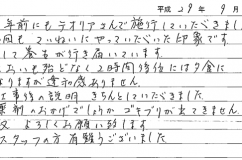 平成 29年 9月
年前にもテオリアさんで施行していただきまし
回も ていねいに やっていただいた 印象です。
して 巻きが行き届いています。
においも殆どなく 2時間 待 後には 夕食に
なりますが 違和感ありません。
工事 の説明 きちんとしていただきました
薬剤のおかげでしょうか ゴキブリが出てきません
又 よろしくお願い致します
スタッフの方 有難うございました